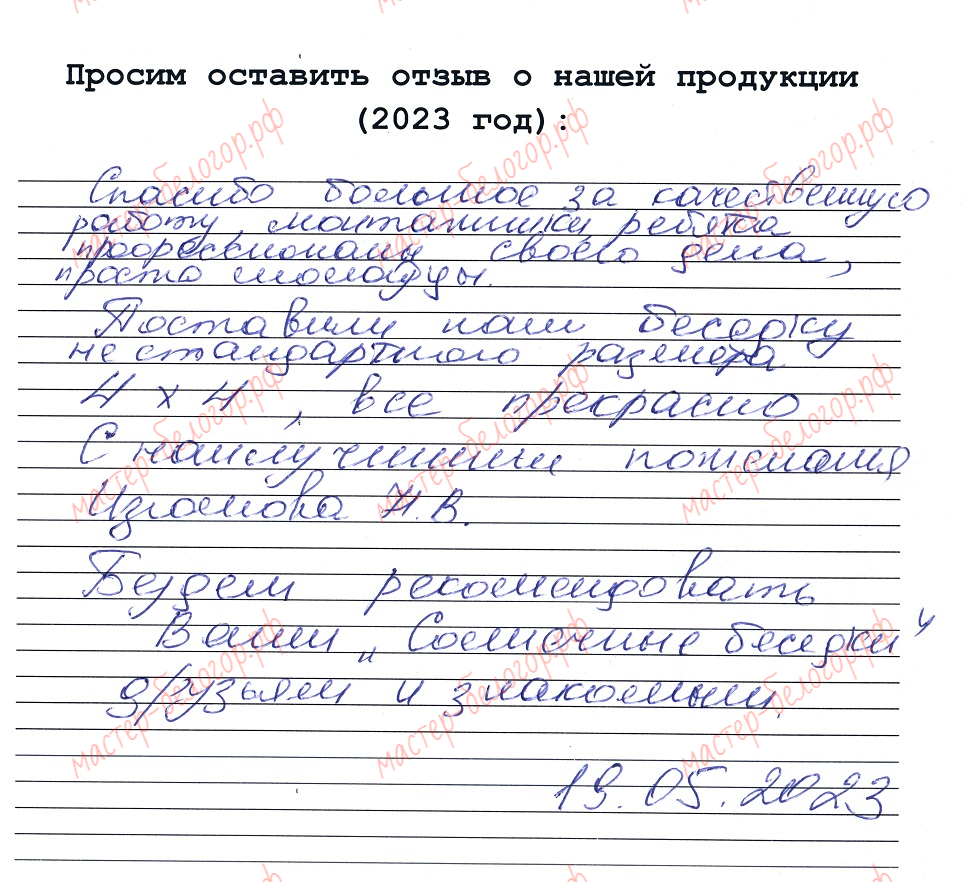 Просим оставить отзыв о нашей продукции
(2023 год):
Спасибо большое за качественную
работу, монтажники ребята
профессионалы своего дела,
просто молодцы.
Поставили нам беседку
нестандартного размера
4 х 4, все прекрасно
С наилучшими пожелания
Изгомова Н.В.
Будем рекомендовать
Ваши "Солнечные беседки"
друзьям и знакомым.
19.05.2023
мастер-белогор.рф